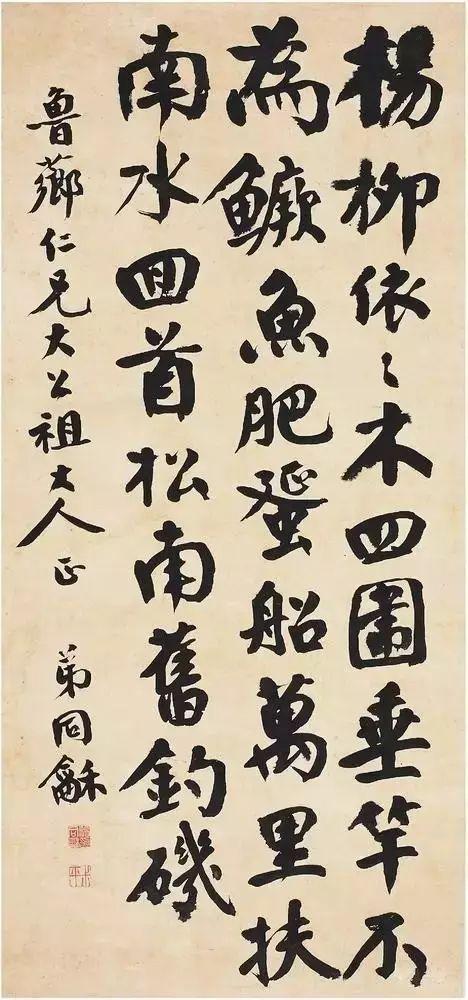 楊柳依〻木四圍垂竿不
為鱖魚肥蜑船萬里扶
南水回首松南舊釣磯
魯薌仁兄大公祖大人正 弟同龢